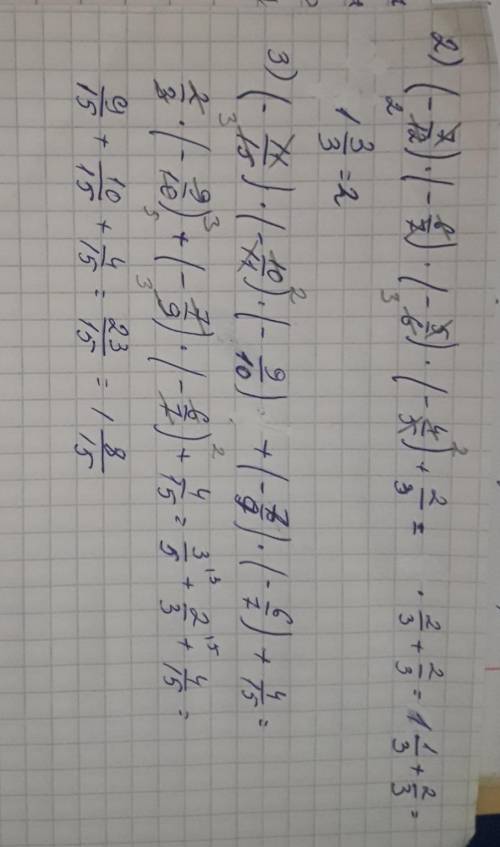 2) (-7/12) · (-8/7) · (-5/6) · (-4/5) + 2/3 = · 2/3 + 2/3 = 1 1/3 + 2/3 =
1 3/3 = 2
3) (-4/15) · (-10/4) · (-9/10) + (-7/9) · (-6/7) + 4/15 =
2/3 · (-9/10) + (-7/9) · (-6/7) + 4/15 = 3/5 + 2/3 + 4/15 =
9/15 + 10/15 + 4/15 = 23/15 = 1 8/15